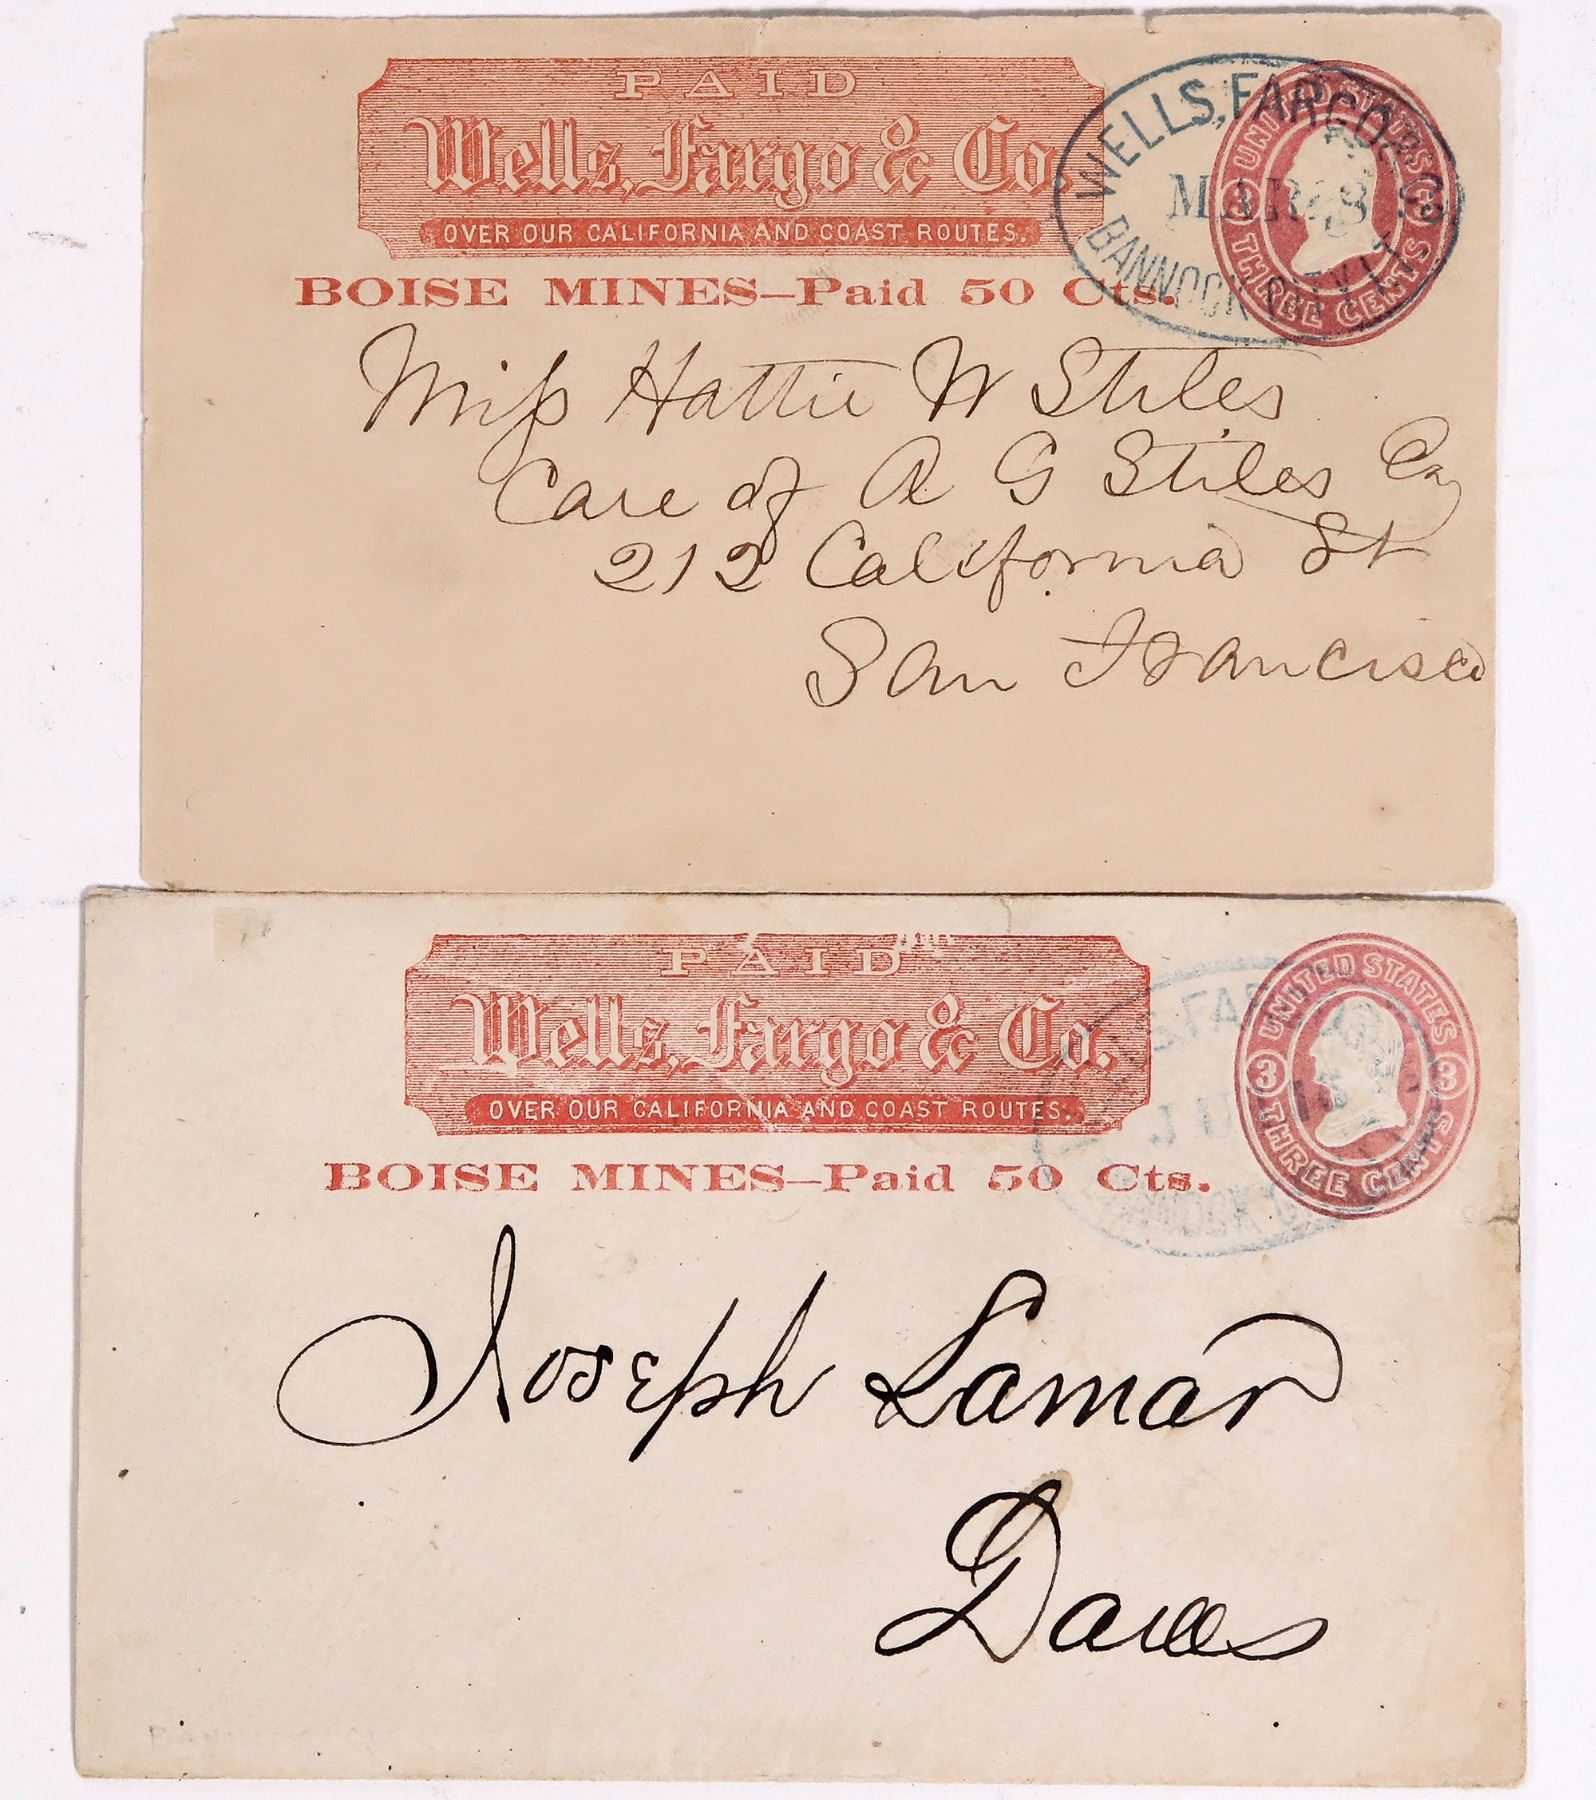 PAID
Wells, Fargo & Co.
OVER OUR CALIFORNIA AND COAST ROUTES.
BOISE MINES–Paid 50 Cts.
WELLS, FARGO & CO
MAR 8
BANNOCK CITY
UNITED STATES
3 3
THREE CENTS
Miss Hattie W Stiles
Care of A G Stiles
212 California St
San Francisco
PAID
Wells, Fargo & Co.
OVER OUR CALIFORNIA AND COAST ROUTES.
BOISE MINES–Paid 50 Cts.
JUL
UNITED STATES
3 3
THREE CENTS
Joseph Lamar